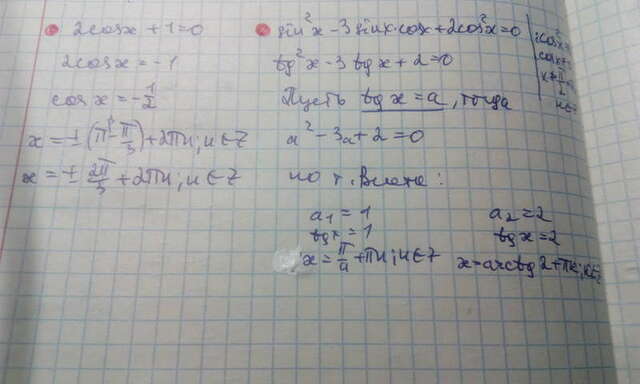 2cosx + 1 = 0
2cosx = -1
cosx = -1/2
x = ±(π - π/3) + 2πn; n∈Z
x = ± 2π/3 + 2πn; n∈Z
sin²x - 3sinx·cosx + 2cos²x = 0
tg²x - 3tgx + 2 = 0
Пусть tgx = a, тогда
a² - 3a + 2 = 0
по т. Виета:
a₁ = 1
tgx = 1
x = π/4 + πn; n∈Z
a₂ = 2
tgx = 2
x = arctg2 + πk; k∈Z
:cos²x